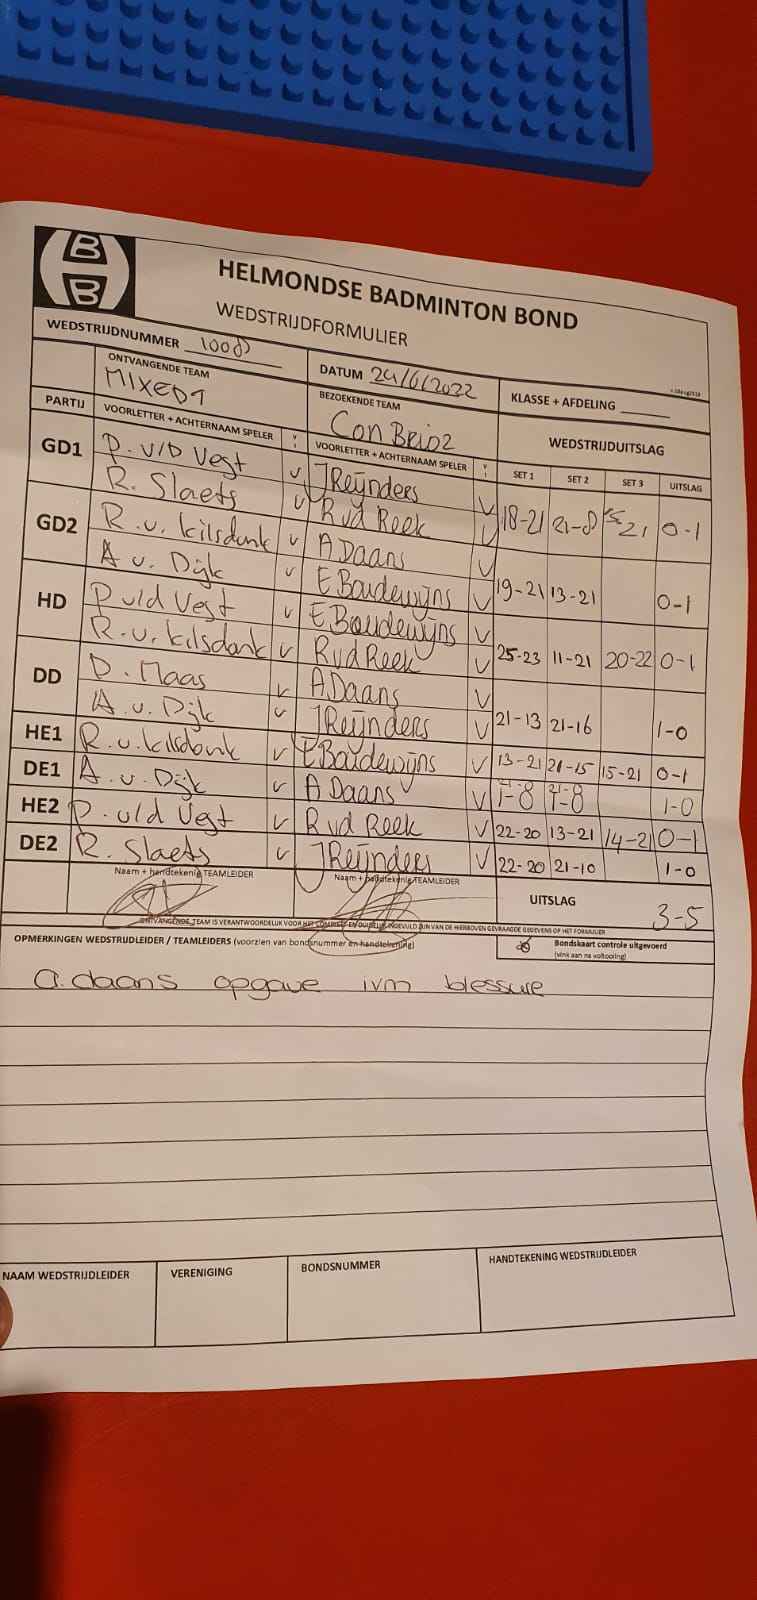 HELMONDSE BADMINTON BOND
WEDSTRIJDFORMULIER
WEDSTRIJDNUMMER 1008
DATUM 24/6/2022
KLASSE + AFDELING
ONTVANGENDE TEAM
MIXED1
BEZOEKENDE TEAM
Con Brio2
WEDSTRIJDUITSLAG
PARTIJ VOORLETTER + ACHTERNAAM SPELER V VOORLETTER + ACHTERNAAM SPELER V SET 1 SET 2 SET 3 UITSLAG
GD1 P. v/d Vegt v J Reijnders V 18-21 21-8 15-21 0-1
R. Slaets v R vd Reek V
GD2 R. v. Kilsdonk v A. Daans V 19-21 13-21 0-1
A v. Dijk v E Boudewijns V
HD P v/d Vegt v E Boudewijns V 25-23 11-21 20-22 0-1
R. v. Kilsdonk v R vd Reek V
DD D. Maas v A. Daans V 21-13 21-16 1-0
A. v. Dijk v J Reijnders V
HE1 R. v. Kilsdonk v E Boudewijns V 13-21 21-15 15-21 0-1
DE1 A. v. Dijk v A Daans V 1-0
HE2 P. v/d Vegt v R vd Reek V 22-20 13-21 14-21 0-1
DE2 R. Slaets v J Reijnders V 22-20 21-10 1-0
Naam + handtekenig TEAMLEIDER Naam + handtekenig TEAMLEIDER UITSLAG 3-5
OPMERKINGEN WEDSTRIJDLEIDER / TEAMLEIDERS (voorzien van bondsnummer en handtekening)
Bondskaart controle uitgevoerd
(vink aan na voltooiing)
a. daans opgave ivm blessure
NAAM WEDSTRIJDLEIDER VERENIGING BONDSNUMMER HANDTEKENING WEDSTRIJDLEIDER